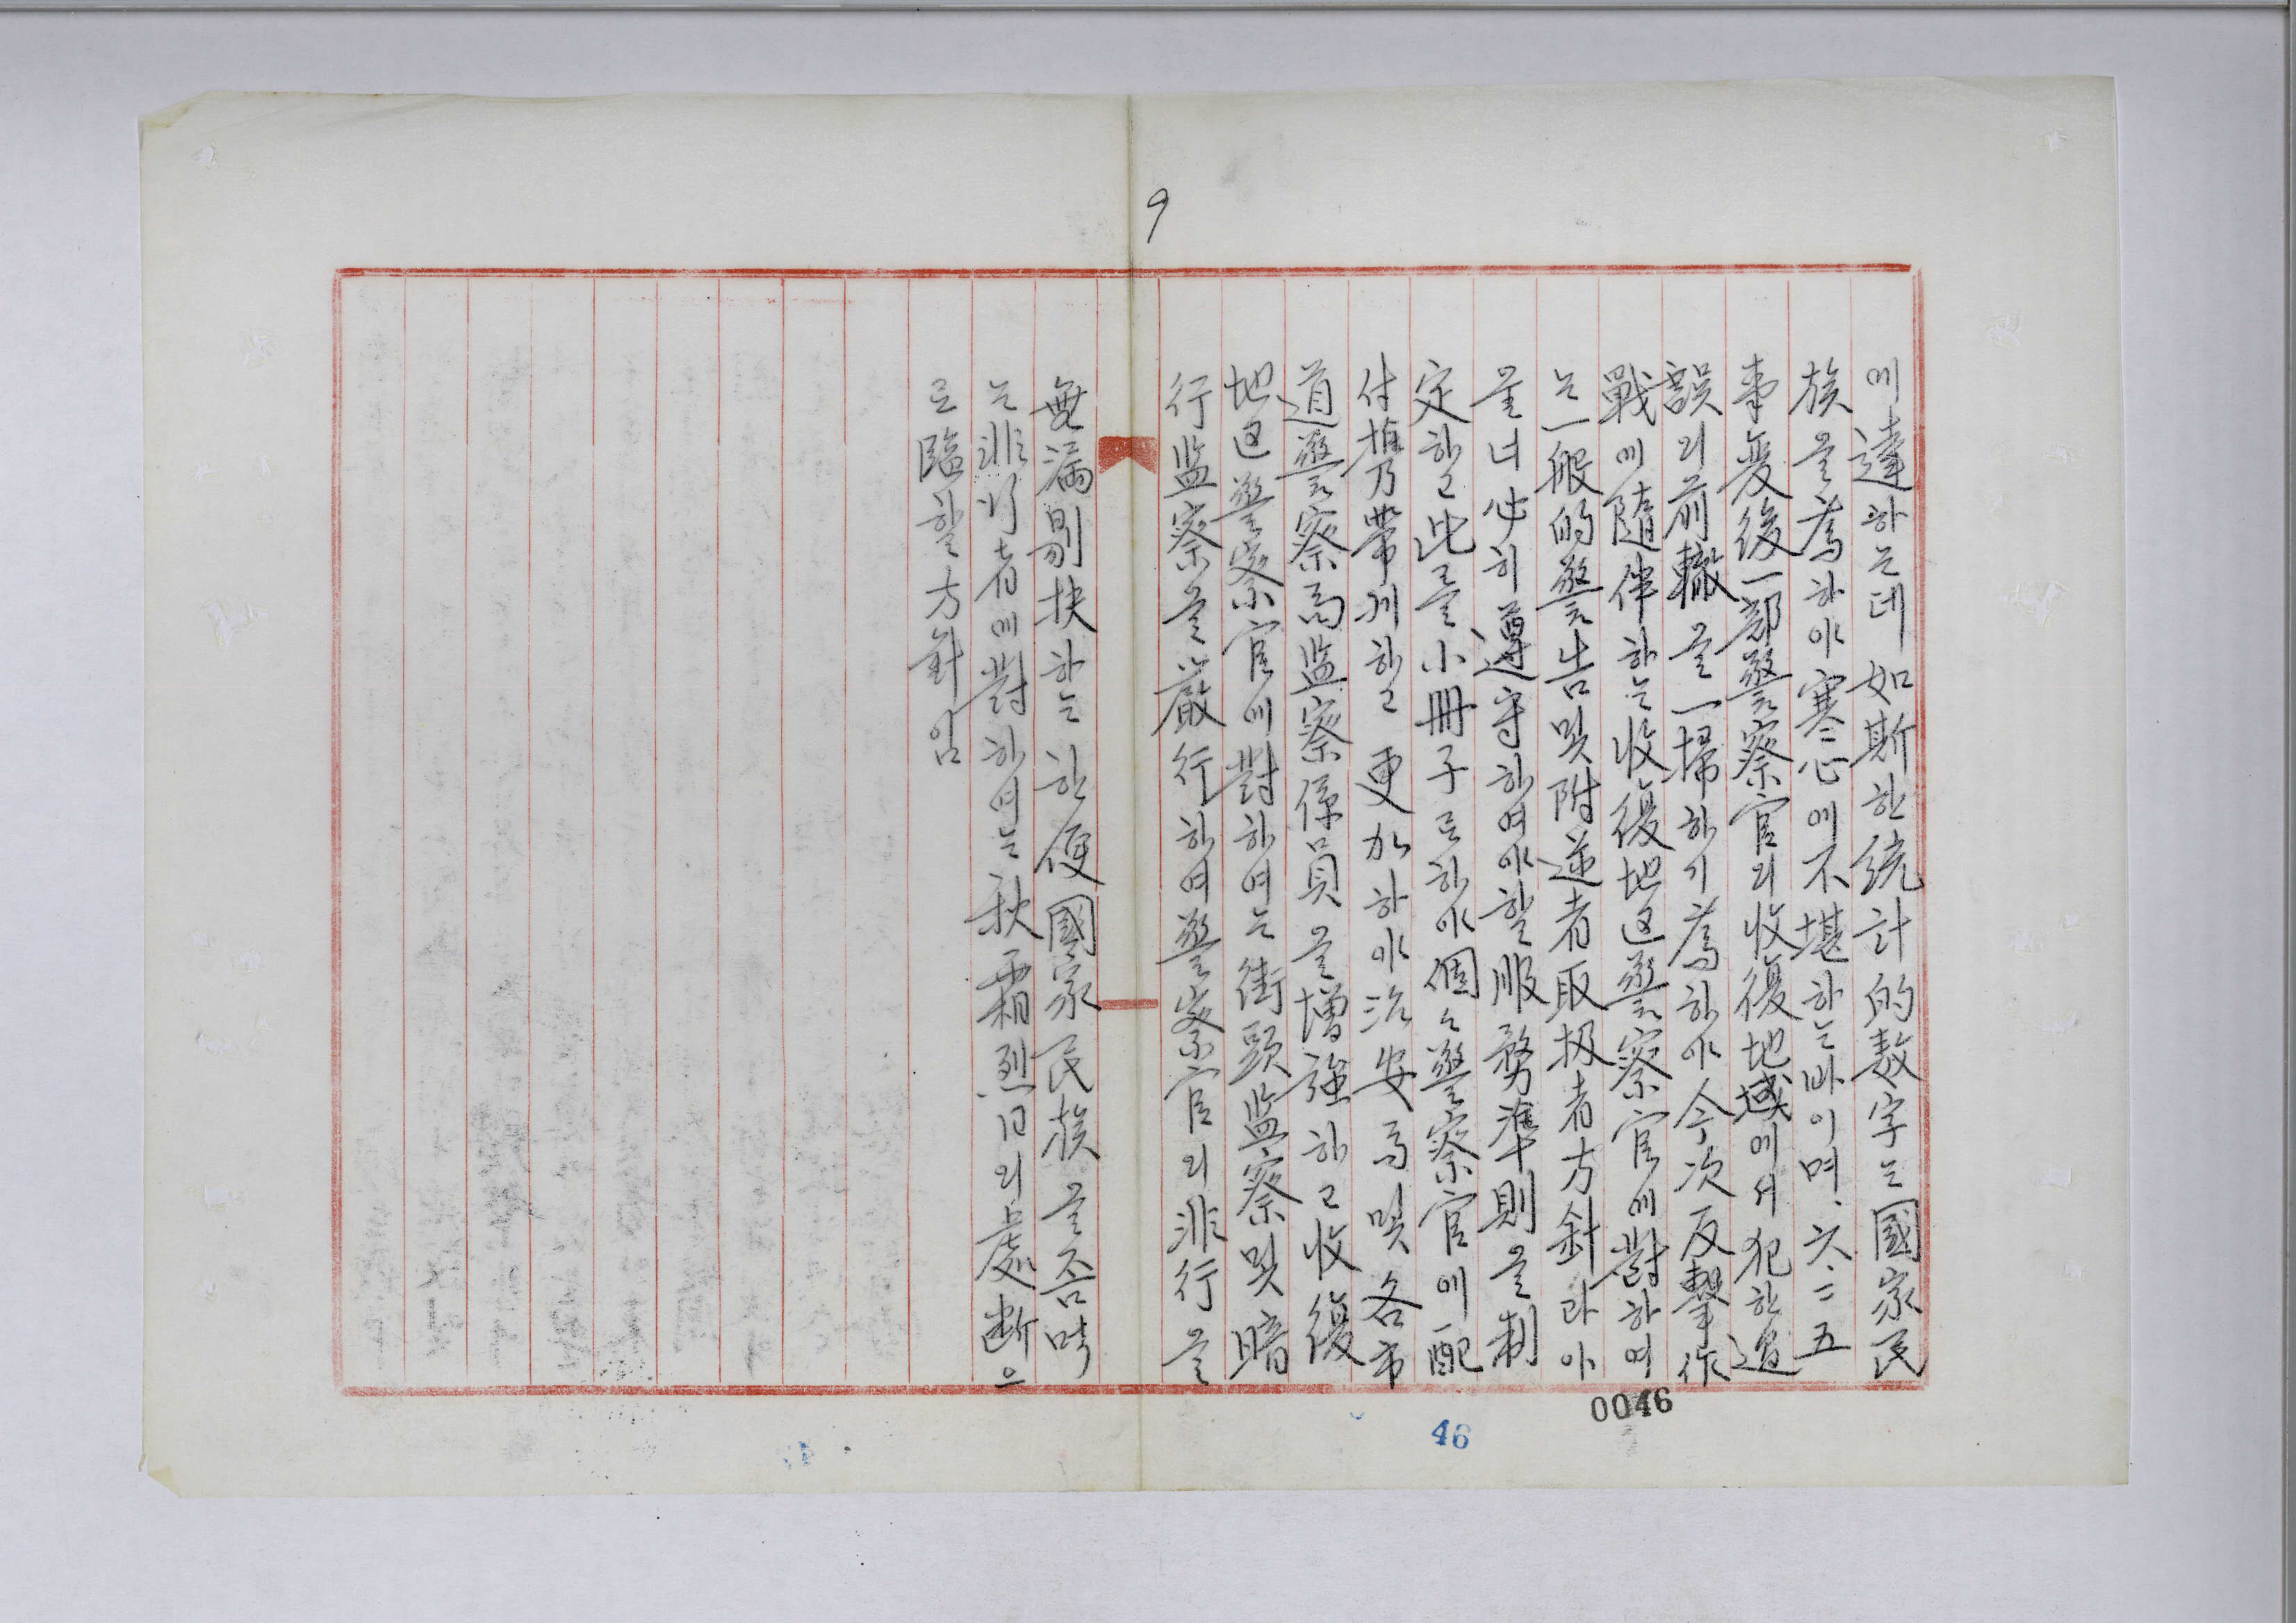 9
에達하는데 如斯한統計的数字는國家民
族을爲하야寒心에不堪하는바이며、六.二五
事変後一部警察官의收復地域에서犯한過
誤의前轍을一掃하기爲하야今次反擊作
戰에隨伴하는收復地区警察官에對하여
는一般的警告및附逆者取扱者方針라아
을너必히遵守하여야할服務準則을制
定하고此를小冊子로하야個々警察官에配
付携帶케하고更加하야治安局및各市
道警察局監察係員을增强하고收復
地区警察官에對하여는街頭監察및暗
行監察을嚴行하여警察官의非行을
無漏剔抉하는한便國家民族을吞噬
는非行者에對하여는秋霜烈日의處断으
로臨할方針임
0046
46